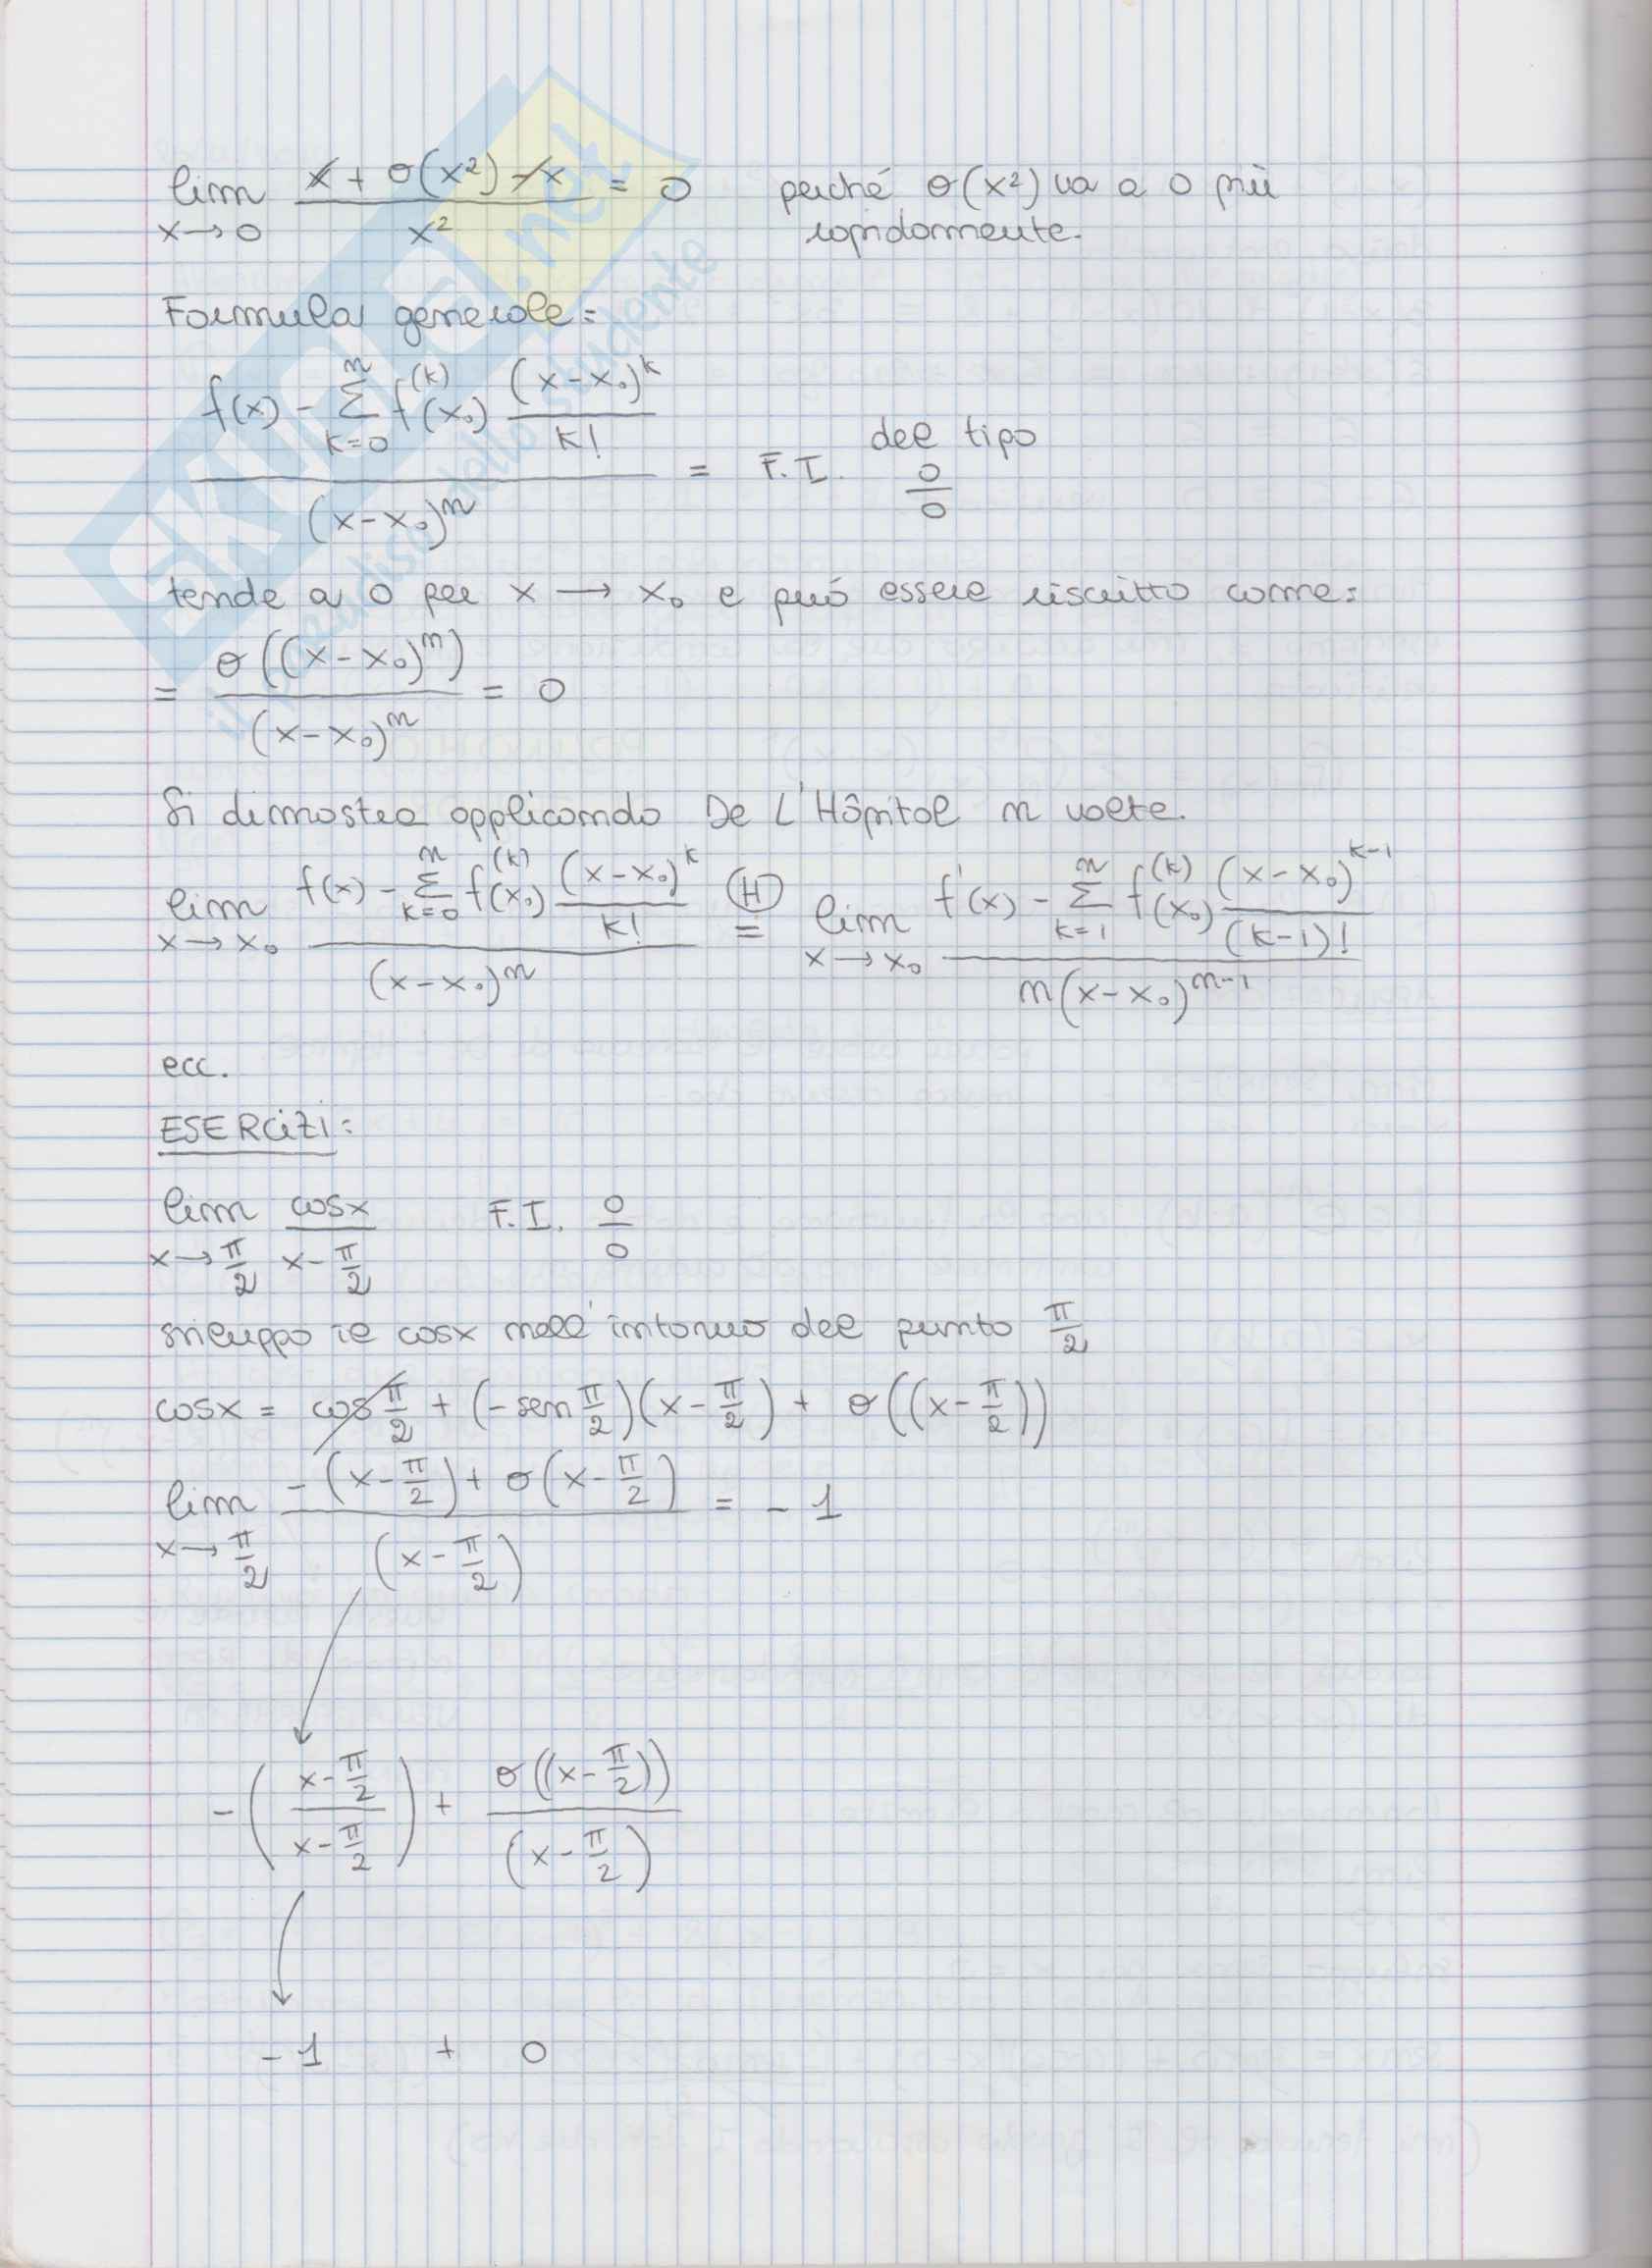 lim x→0 (x + o(x²) - x)/x² = 0 perché o(x²) va a 0 più
rapidamente.
Formula generale:
(f(x) - Σ_{k=0}^{n} f^{(k)}(x₀) (x-x₀)^k/k!)/(x-x₀)^n = F.I. del tipo 0/0
tende a 0 per x → x₀ e può essere riscritto come:
= o((x-x₀)^n)/(x-x₀)^n = 0
Si dimostra applicando De L'Hôpital n volte.
lim x→x₀ (f(x) - Σ_{k=0}^{n} f^{(k)}(x₀) (x-x₀)^k/k!)/(x-x₀)^n (H)= lim x→x₀ (f'(x) - Σ_{k=1}^{n} f^{(k)}(x₀) (x-x₀)^{k-1}/(k-1)!)/(n(x-x₀)^{n-1})
ecc.
ESERCIZI:
lim x→π/2 cosx/(x-π/2) F.I. 0/0
sviluppo il cosx nell'intorno del punto π/2
cosx = cos π/2 + (-sen π/2)(x-π/2) + o((x-π/2))
lim x→π/2 (-(x-π/2) + o(x-π/2))/(x-π/2) = -1
-((x-π/2)/(x-π/2)) + o((x-π/2))/(x-π/2)
-1 + 0
SKUOLA.net
il paradiso dello studente